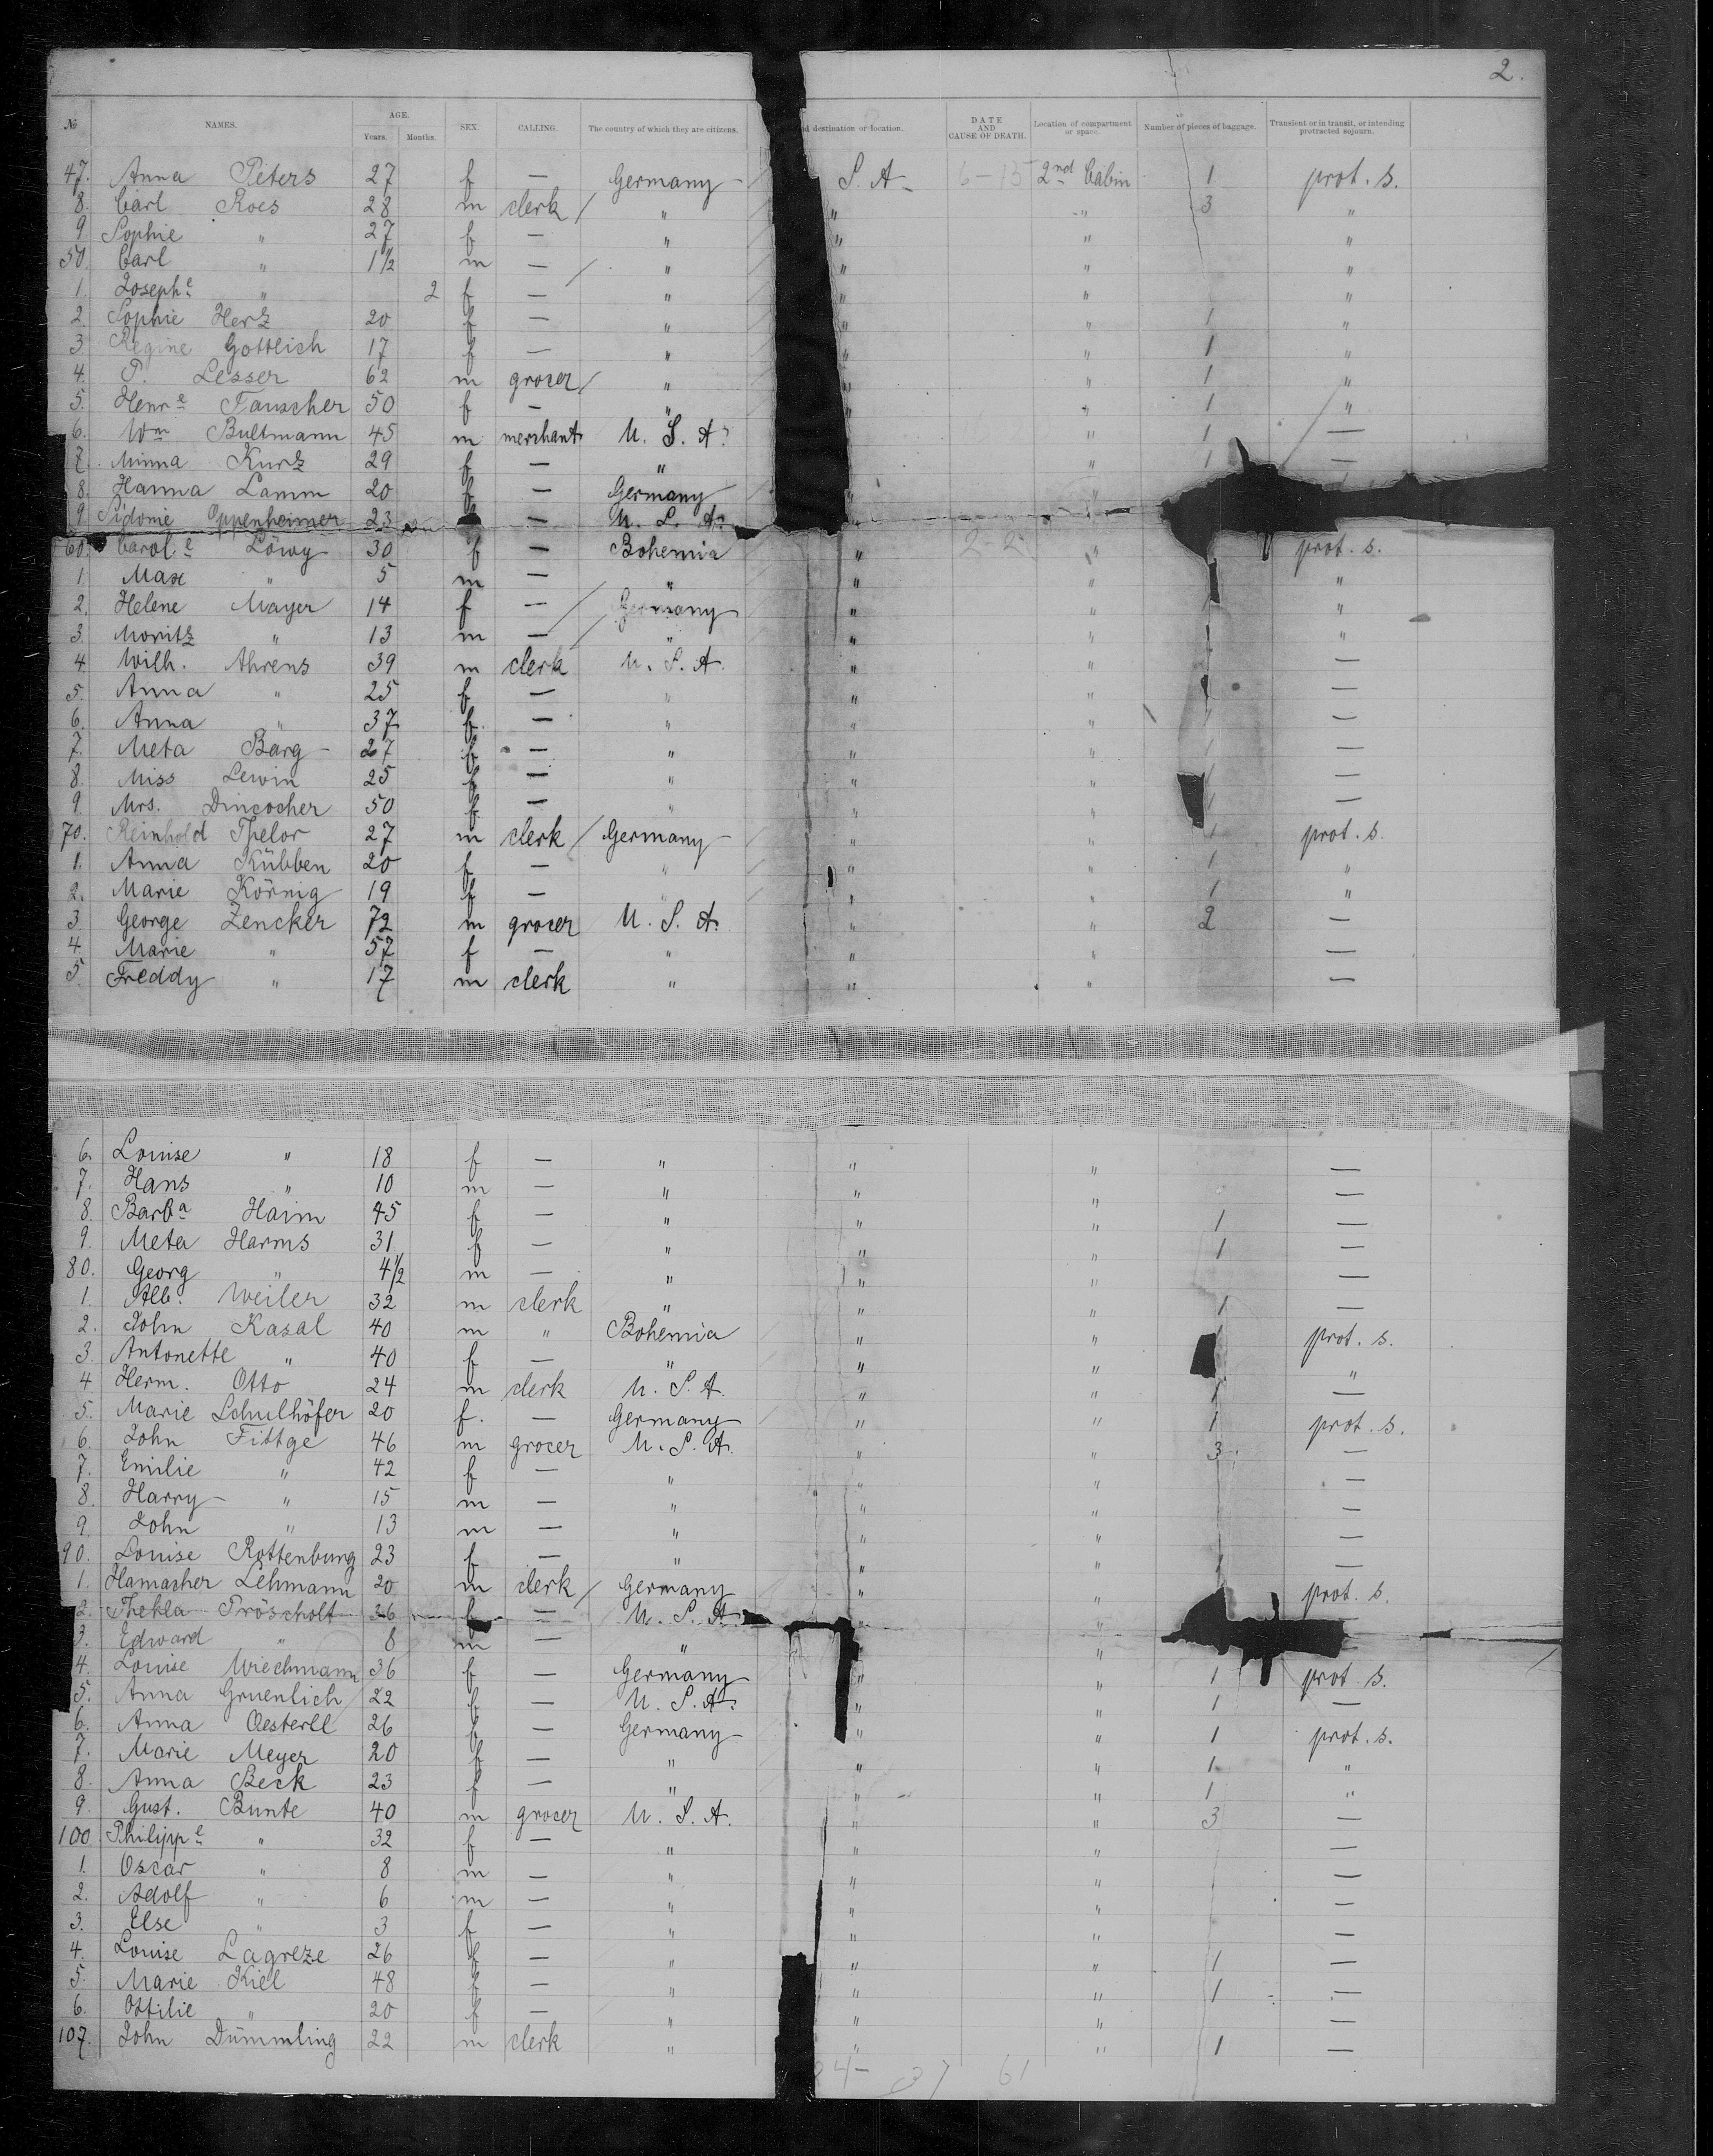 2.
No NAMES. AGE. Years. Months. SEX. CALLING. The country of which they are citizens. d destination or location. DATE AND CAUSE OF DEATH. Location of compartment or space. Number of pieces of baggage. Transient or in transit, or intending protracted sojourn.
47. Anna Peters 27 f — Germany S. A. 6-15 2nd Cabin 1 prot. s.
8. Carl Roes 28 m clerk / " " " 3 "
9 Sophie " 27 f — " " " "
50. Carl " 1 1/2 m — / " " " "
1. Josephe " 2 f — " " " "
2. Sophie Herz 20 f — " " " 1 "
3. Regine Gottlich 17 f — " " " 1 "
4. P. Lesser 62 m grocer / " " " 1 "
5. Henre Tauscher 50 f — " " " 1 "
6. Wm Bultmann 45 m merchant U. S. A. " 1 —
7. Minna Kurz 29 f — " " 1 —
8. Hanna Lamm 20 f — Germany " "
9 Sidonie Oppenheimer 23 — U. S. A. "
60. Carole Löwy 30 f — Bohemia " 2-2 " prot. s.
1. Max " 5 m — " " " "
2. Helene Mayer 14 f — / Germany " " "
3. Moritz " 13 m — / " " " "
4 Wilh. Ahrens 39 m clerk U. S. A. " " —
5. Anna " 25 f — " " " —
6. Anna " 37 f — " " " —
7. Meta Barg 27 f — " " " 1 —
8. Miss Lewin 25 f — " " " —
9. Mrs. Dincocher 50 f — " " " —
70. Reinhold Thelor 27 m clerk / Germany " " 1 prot. s.
1. Anna Kübben 20 f — " " " 1 "
2. Marie Körnig 19 f — " " " 1 "
3 George Zencker 72 m grocer U. S. A. " " 2 —
4. Marie " 57 f — " " " —
5. Freddy " 17 m clerk " " " —
6. Louise " 18 f — " " " —
7. Hans " 10 m — " " " —
8. Barba Haim 45 f — " " " 1 —
9. Meta Harms 31 f — " " " 1 —
80. Georg " 4 1/2 m — " " " —
1. Alb. Weiler 32 m clerk " " " 1 —
2. John Kasal 40 m " Bohemia " " 1 prot. s.
3. Antonette " 40 f — " " " "
4 Herm. Otto 24 m clerk U. S. A. " " 1 —
5. Marie Schulhöfer 20 f. — Germany " " 1 prot. s.
6. John Fittge 46 m grocer U. S. A. " " 3 —
7. Emilie " 42 f — " " " —
8. Harry " 15 m — " " " —
9. John " 13 m — " " " —
90. Louise Rottenburg 23 f — " " " 1 —
1. Hamacher Lehmann 20 m clerk / Germany " " prot. s.
2. Thekla Pröscholt 26 f — U. S. A. " "
3. Edward " 8 m — " "
4. Louise Wiechmann 36 f — Germany " " 1 prot. s.
5. Anna Gruenlich 22 f — U. S. A. " " 1 —
6. Anna Oesterle 26 f — Germany " " 1 prot. s.
7. Marie Meyer 20 f — " " " 1 "
8. Anna Beck 23 f — " " " 1 "
9. Gust. Bunte 40 m grocer U. S. A. " " 3 —
100 Philippe " 32 f — " " " —
1. Oscar " 8 m — " " " —
2. Adolf " 6 m — " " " —
3. Else " 3 f — " " " —
4. Louise Lagreze 26 f — " " " 1 —
5. Marie Kiel 48 f — " " " 1 —
6. Ottilie " 20 f — " " " —
107. John Dümmling 22 m clerk " " " 1 —
61